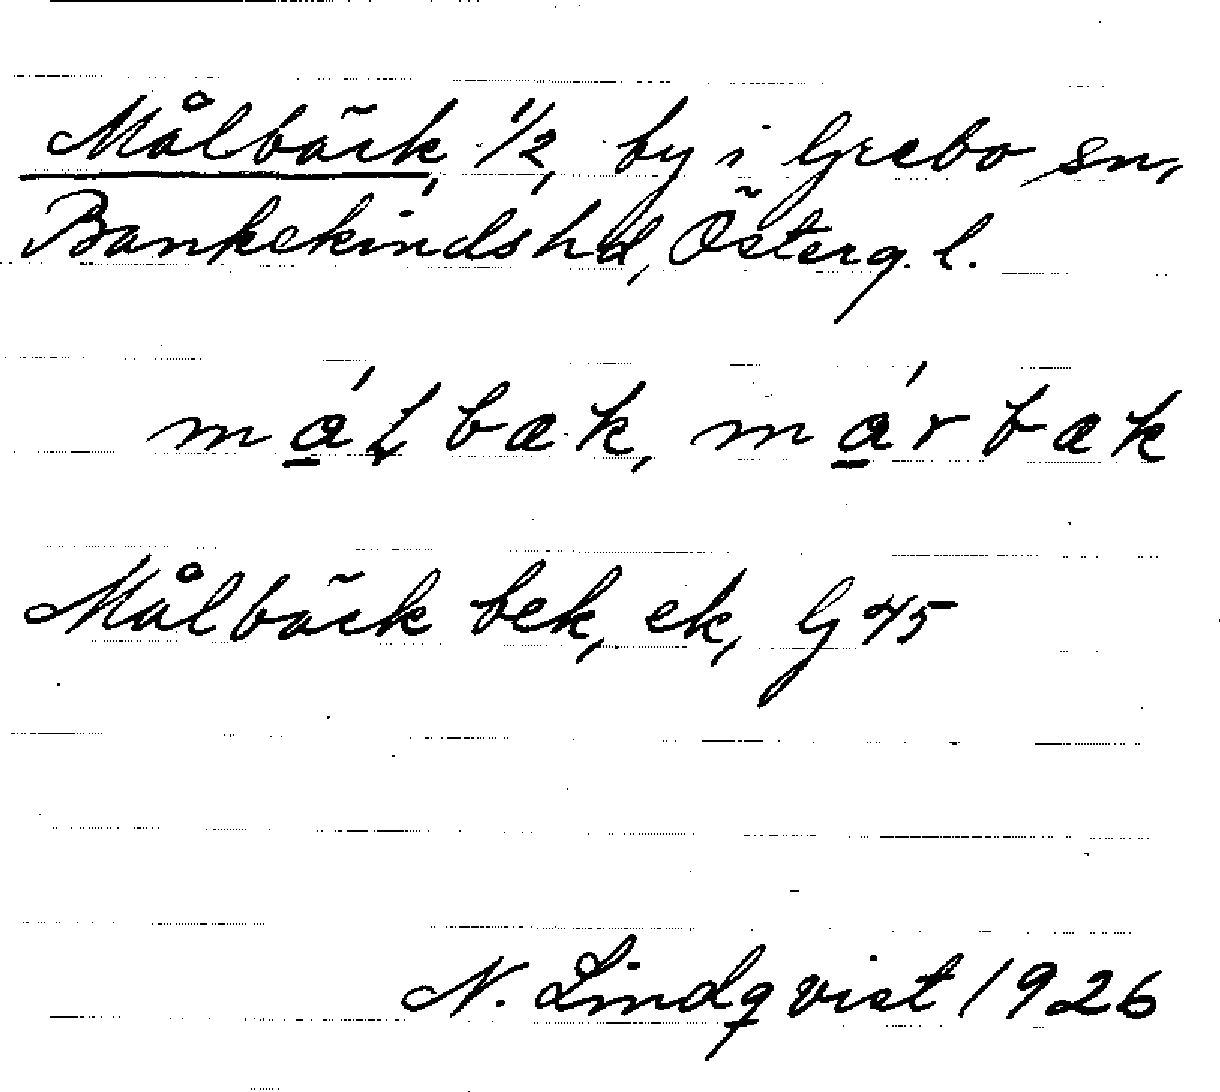 Målbäck, 1/2, by i Grebo sn,
Bankekinds hd, Österg. l.
mǻłbæk, mǻrbæk
Målbäck bek, ek, G 45
N. Lindqvist 1926